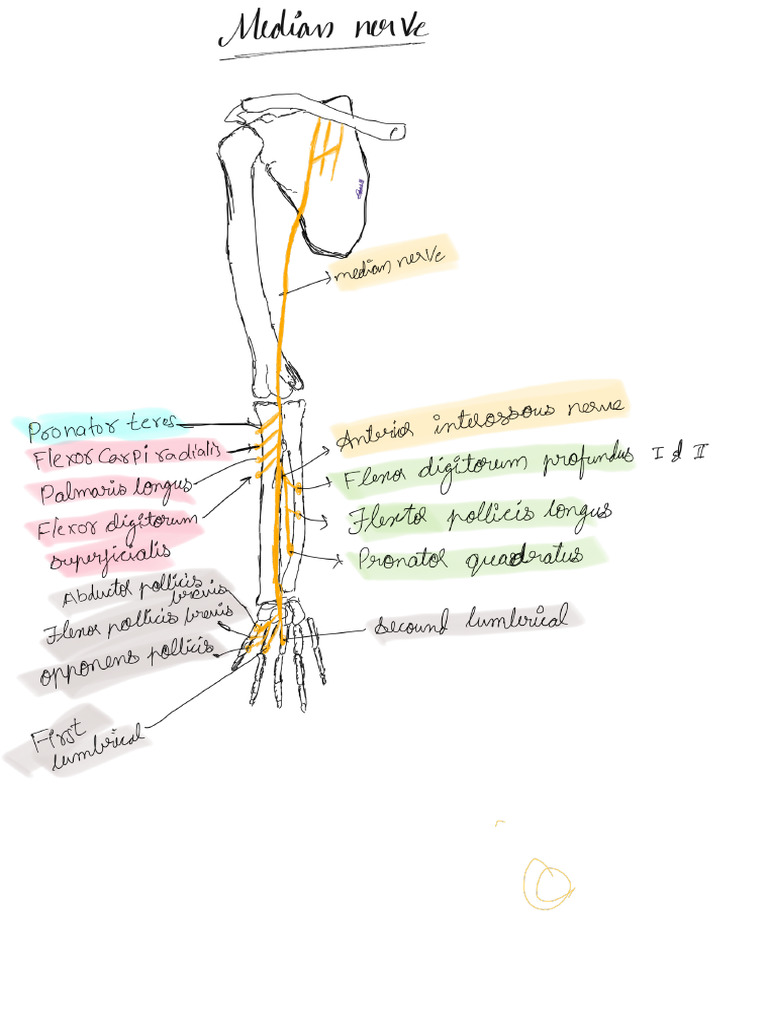 Median nerve
median nerve
Pronator teres
Flexor carpi radialis
Palmaris longus
Flexor digitorum
superficialis
Abductor pollicis
brevis
Flexor pollicis brevis
opponens pollicis
First
lumbrical
Anterior interossous nerve
Flexor digitorum profundus I & II
Flextor pollicis longus
Pronator quadratus
secound lumbrical